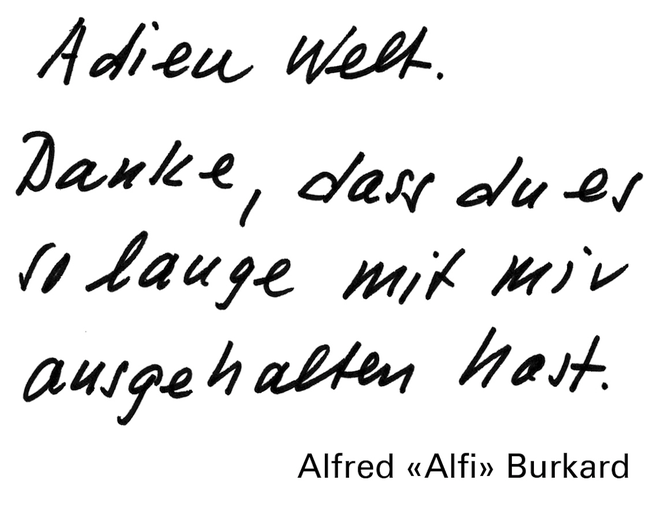 Adieu Welt.
Danke, dass du es
so lange mit mir
ausgehalten hast.
Alfred «Alfi» Burkard